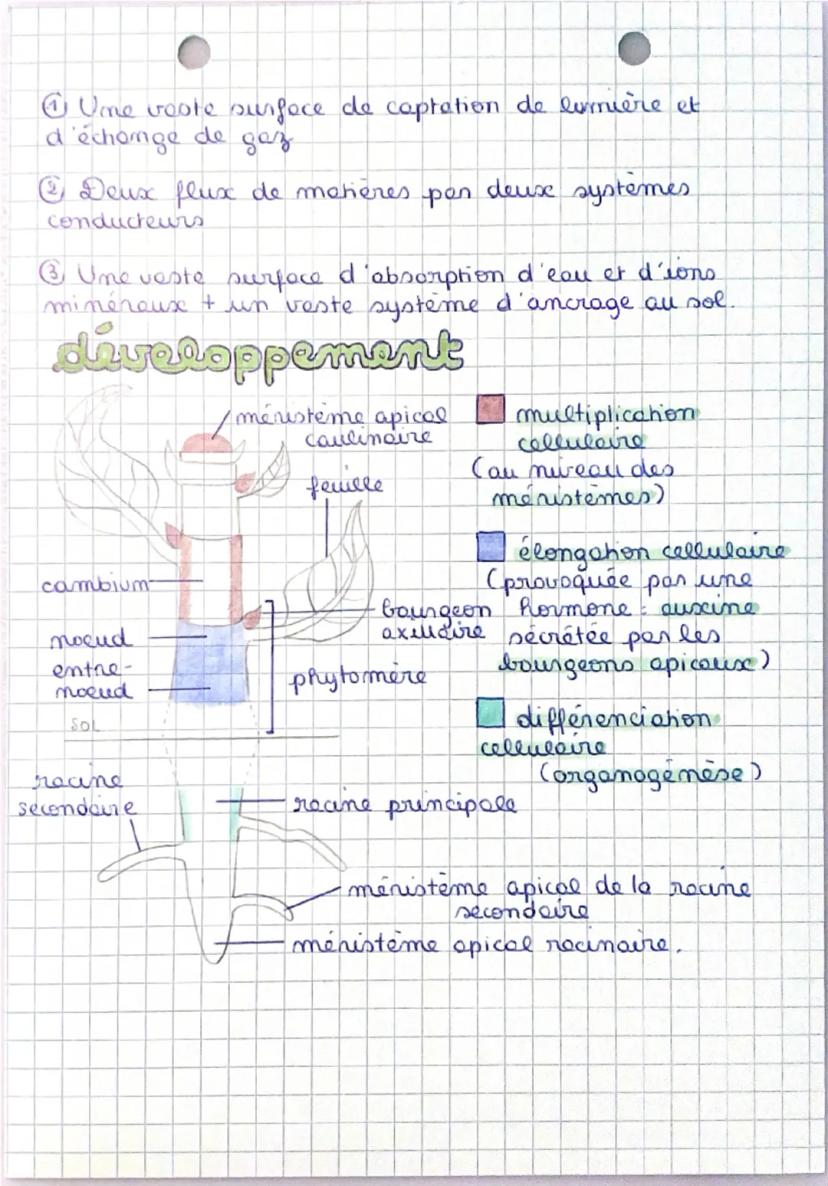 ① Une vaste surface de captation de lumière et
d'échange de gaz
② Deux flux de matières par deux systèmes
conducteurs
③ Une vaste surface d'absorption d'eau et d'ions
minéraux + un vaste système d'ancrage au sol.
développement
méristème apical
caulinaire
feuille
cambium
bourgeon
axillaire
noeud
entre-
noeud
phytomère
SOL
racine
secondaire
racine principale
méristème apical de la racine
secondaire
méristème apical racinaire.
multiplication
cellulaire
(au niveau des
méristèmes)
élongation cellulaire
(provoquée par une
hormone : auxine
sécrétée par les
bourgeons apicaux)
différenciation
cellulaire
(organogénèse)